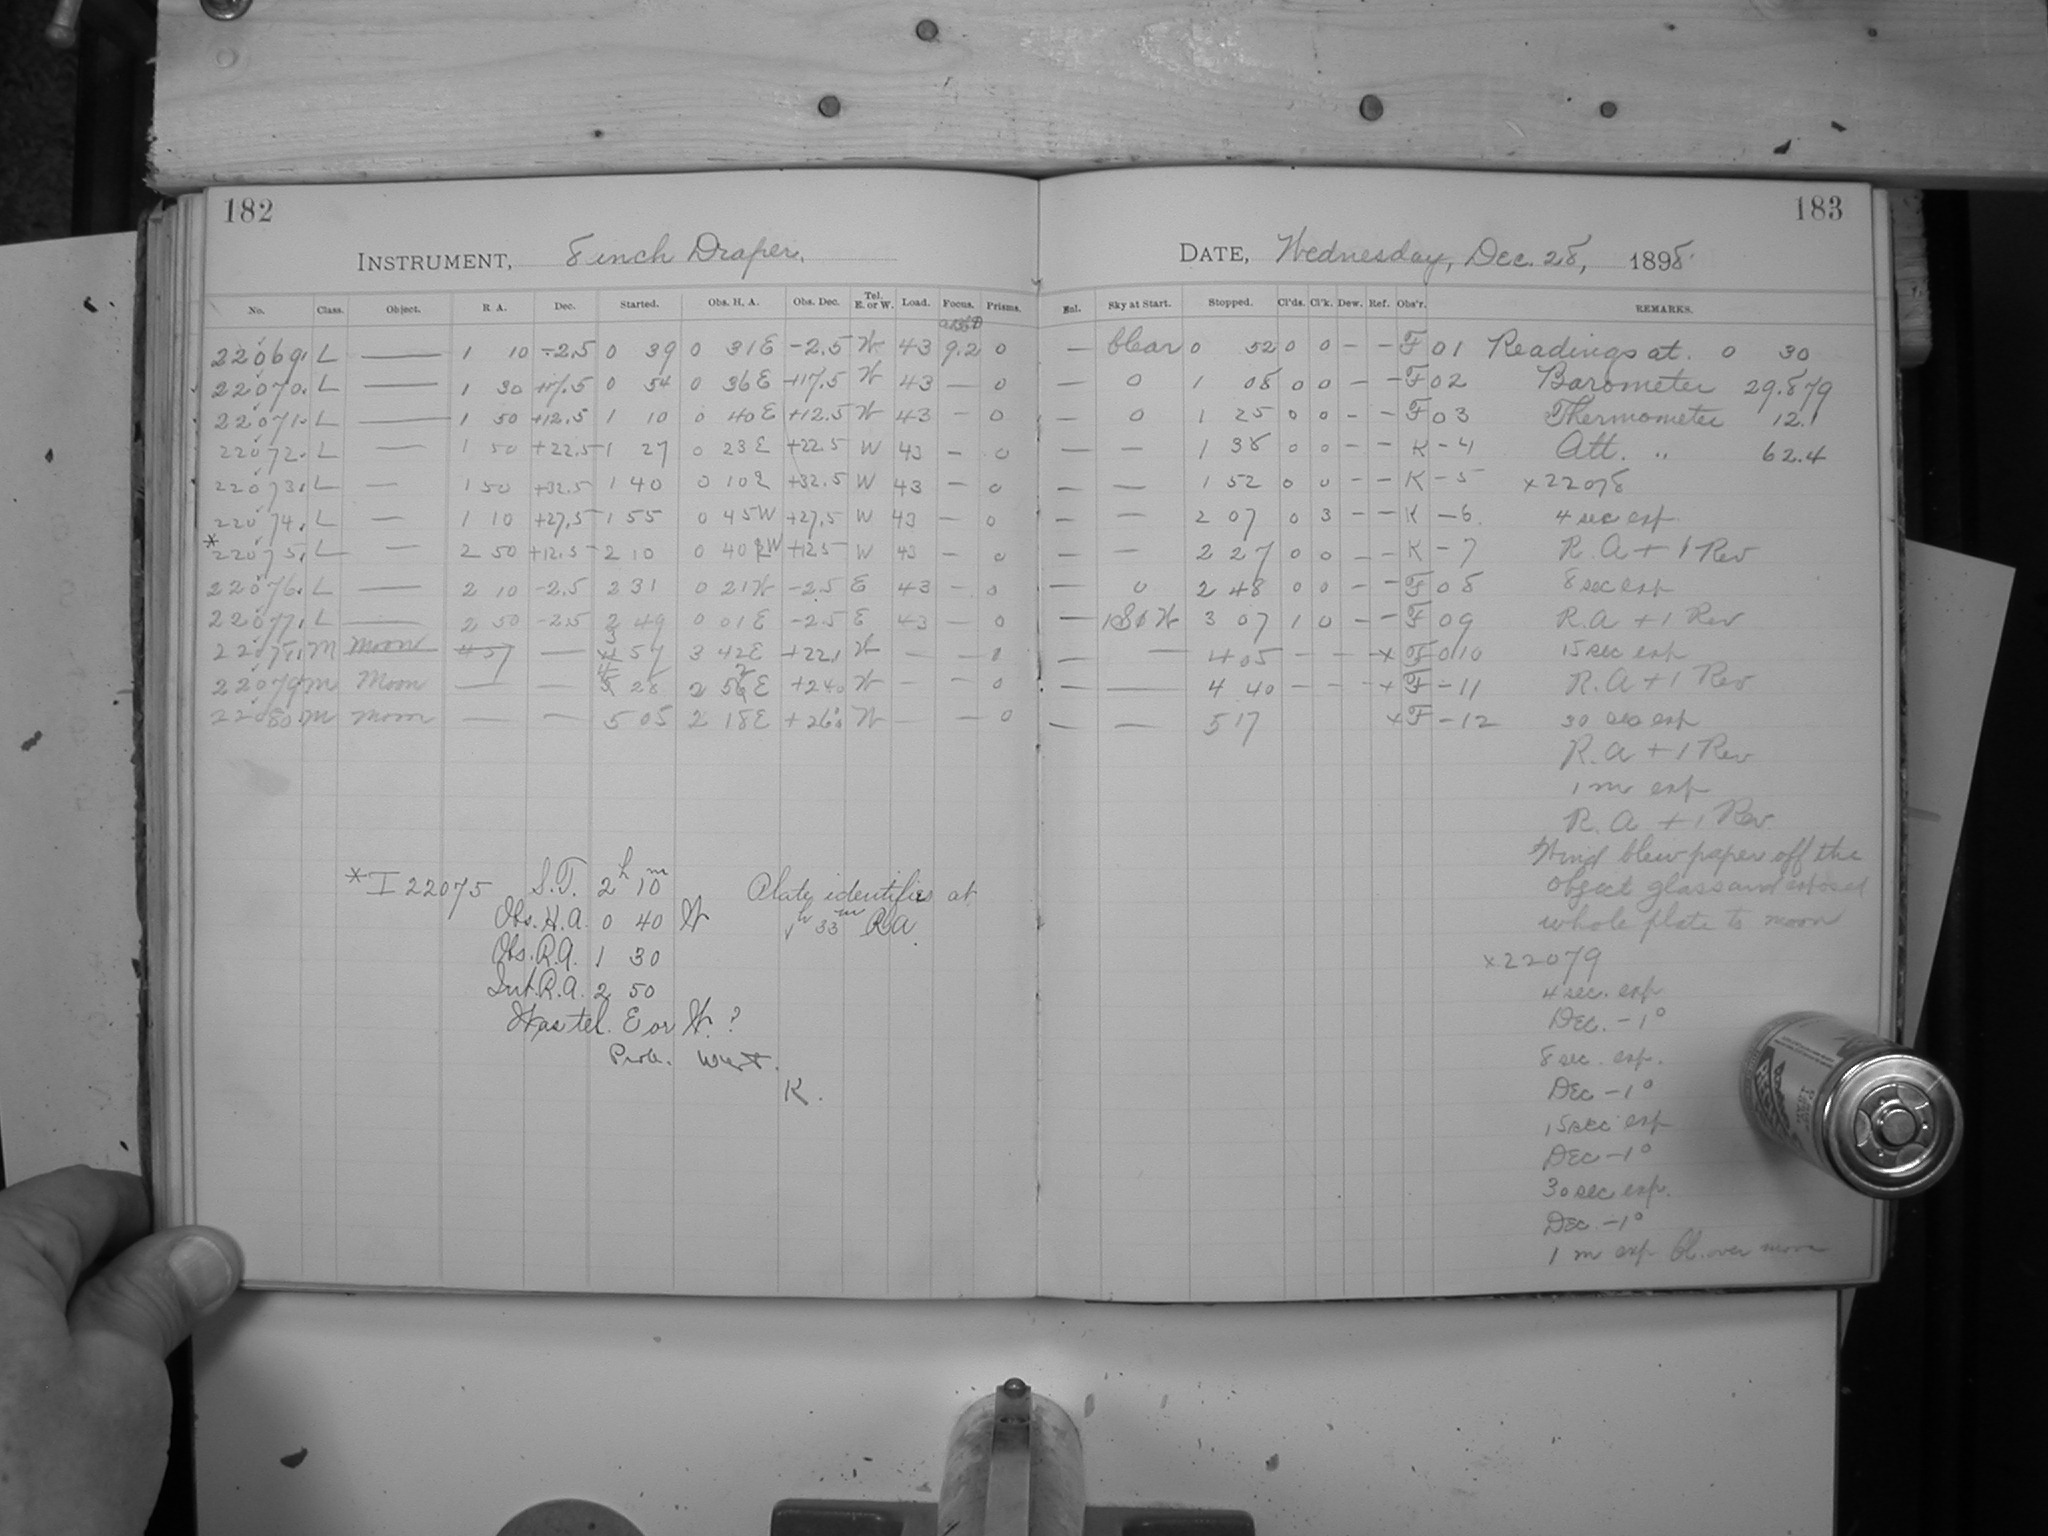 182
INSTRUMENT, 8 inch Draper.
No. Class. Object. R A. Dec. Started. Obs. H. A. Obs. Dec. Tel. E. or W. Load. Focus. Prisms.
22069. L — 1 10 -2.5 0 39 0 31 E -2.5 W 43 9.2 0
22070. L — 1 30 +17.5 0 54 0 36 E +17.5 W 43 — 0
22071. L — 1 50 +12.5 1 10 0 40 E +12.5 W 43 — 0
22072. L — 1 50 +22.5 1 27 0 23 E +22.5 W 43 — 0
22073. L — 1 50 +32.5 1 40 0 10 E +32.5 W 43 — 0
22074. L — 1 10 +27.5 1 55 0 45 W +27.5 W 43 — 0
*22075. L — 2 50 +12.5 2 10 0 40 W +12.5 W 43 — 0
22076. L — 2 10 -2.5 2 31 0 21 W -2.5 E 43 — 0
22077. L — 2 50 -2.5 2 49 0 01 E -2.5 E 43 — 0
22078. M Moon 4 57 — 3 57 3 42 E +22.1 W — — 0
22079 M Moon — — 4 28 2 52 E +24.0 W — — 0
22080. M Moon — — 5 05 2 18 E +26.0 W — — 0
*I 22075 S.T. 2h 10m
Obs. H.A. 0 40 W
Obs. R.A. 1 30
Int. R.A. 2 50
Was tel. E or W.?
Prob. West.
K.
Plate identifies at
1h 33m RA.
183
DATE, Wednesday, Dec. 28, 1898.
Enl. Sky at Start. Stopped. Cl'ds. Cl'k. Dew. Ref. Obs'r. REMARKS.
— Clear 0 52 0 0 — — F 01 Readings at. 0 30
— 0 1 08 0 0 — — F 02 Barometer 29.879
— 0 1 25 0 0 — — F 03 Thermometer 12.1
— — 1 38 0 0 — — K — 4 Att. " 62.4
— — 1 52 0 0 — — K — 5 x22078
— — 2 07 0 3 — — K — 6 4 sec exp
— — 2 27 0 0 — — K — 7 R.A + 1 Rev
— 0 2 48 0 0 — — F 08 8 sec exp
— 3 07 1 0 — — F 09 R.A + 1 Rev
— — 4 05 — — — x F 010 15 sec exp
— — 4 40 — — — x F — 11 R.A + 1 Rev
— — 5 17 x F — 12 30 sec exp
R.A + 1 Rev
1 m exp
R.A + 1 Rev
Wind blew paper off the
object glass and exposed
whole plate to moon
x22079
4 sec. exp
Dec. -1°
8 sec. exp.
Dec -1°
15 sec exp
Dec -1°
30 sec exp.
Dec. -1°
1 m exp Cl. over moon